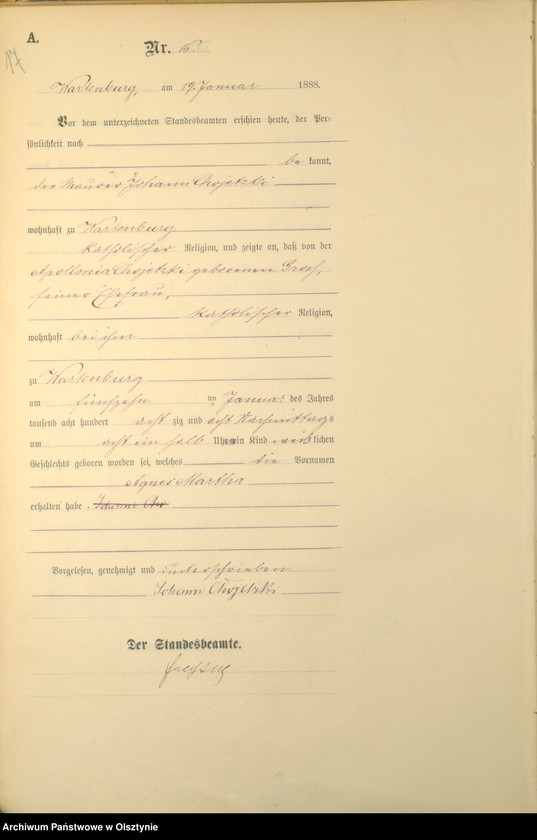 A.
17
Nr.
Wartenburg, am 19. Januar 1888.
Vor dem unterzeichneten Standesbeamten erschien heute, der Per-
sönlichkeit nach
be kannt,
der Maurer Johann Chojetzki
wohnhaft zu Wartenburg
katholischer Religion, und zeigte an, daß von der
Apollonia Chojetzki geborenen
seiner Ehefrau,
katholischer Religion,
wohnhaft bei ihm
zu Wartenburg
am fünfzehn ten Januar des Jahres
tausend acht hundert acht zig und acht Nachmittags
um acht ein halb Uhr ein Kind weib lichen
Geschlechts geboren worden sei, welches die Vornamen
Agnes Martha
erhalten habe. Johann
Vorgelesen, genehmigt und unterschrieben
Johann Chojetzki
Der Standesbeamte.
Archiwum Państwowe w Olsztynie